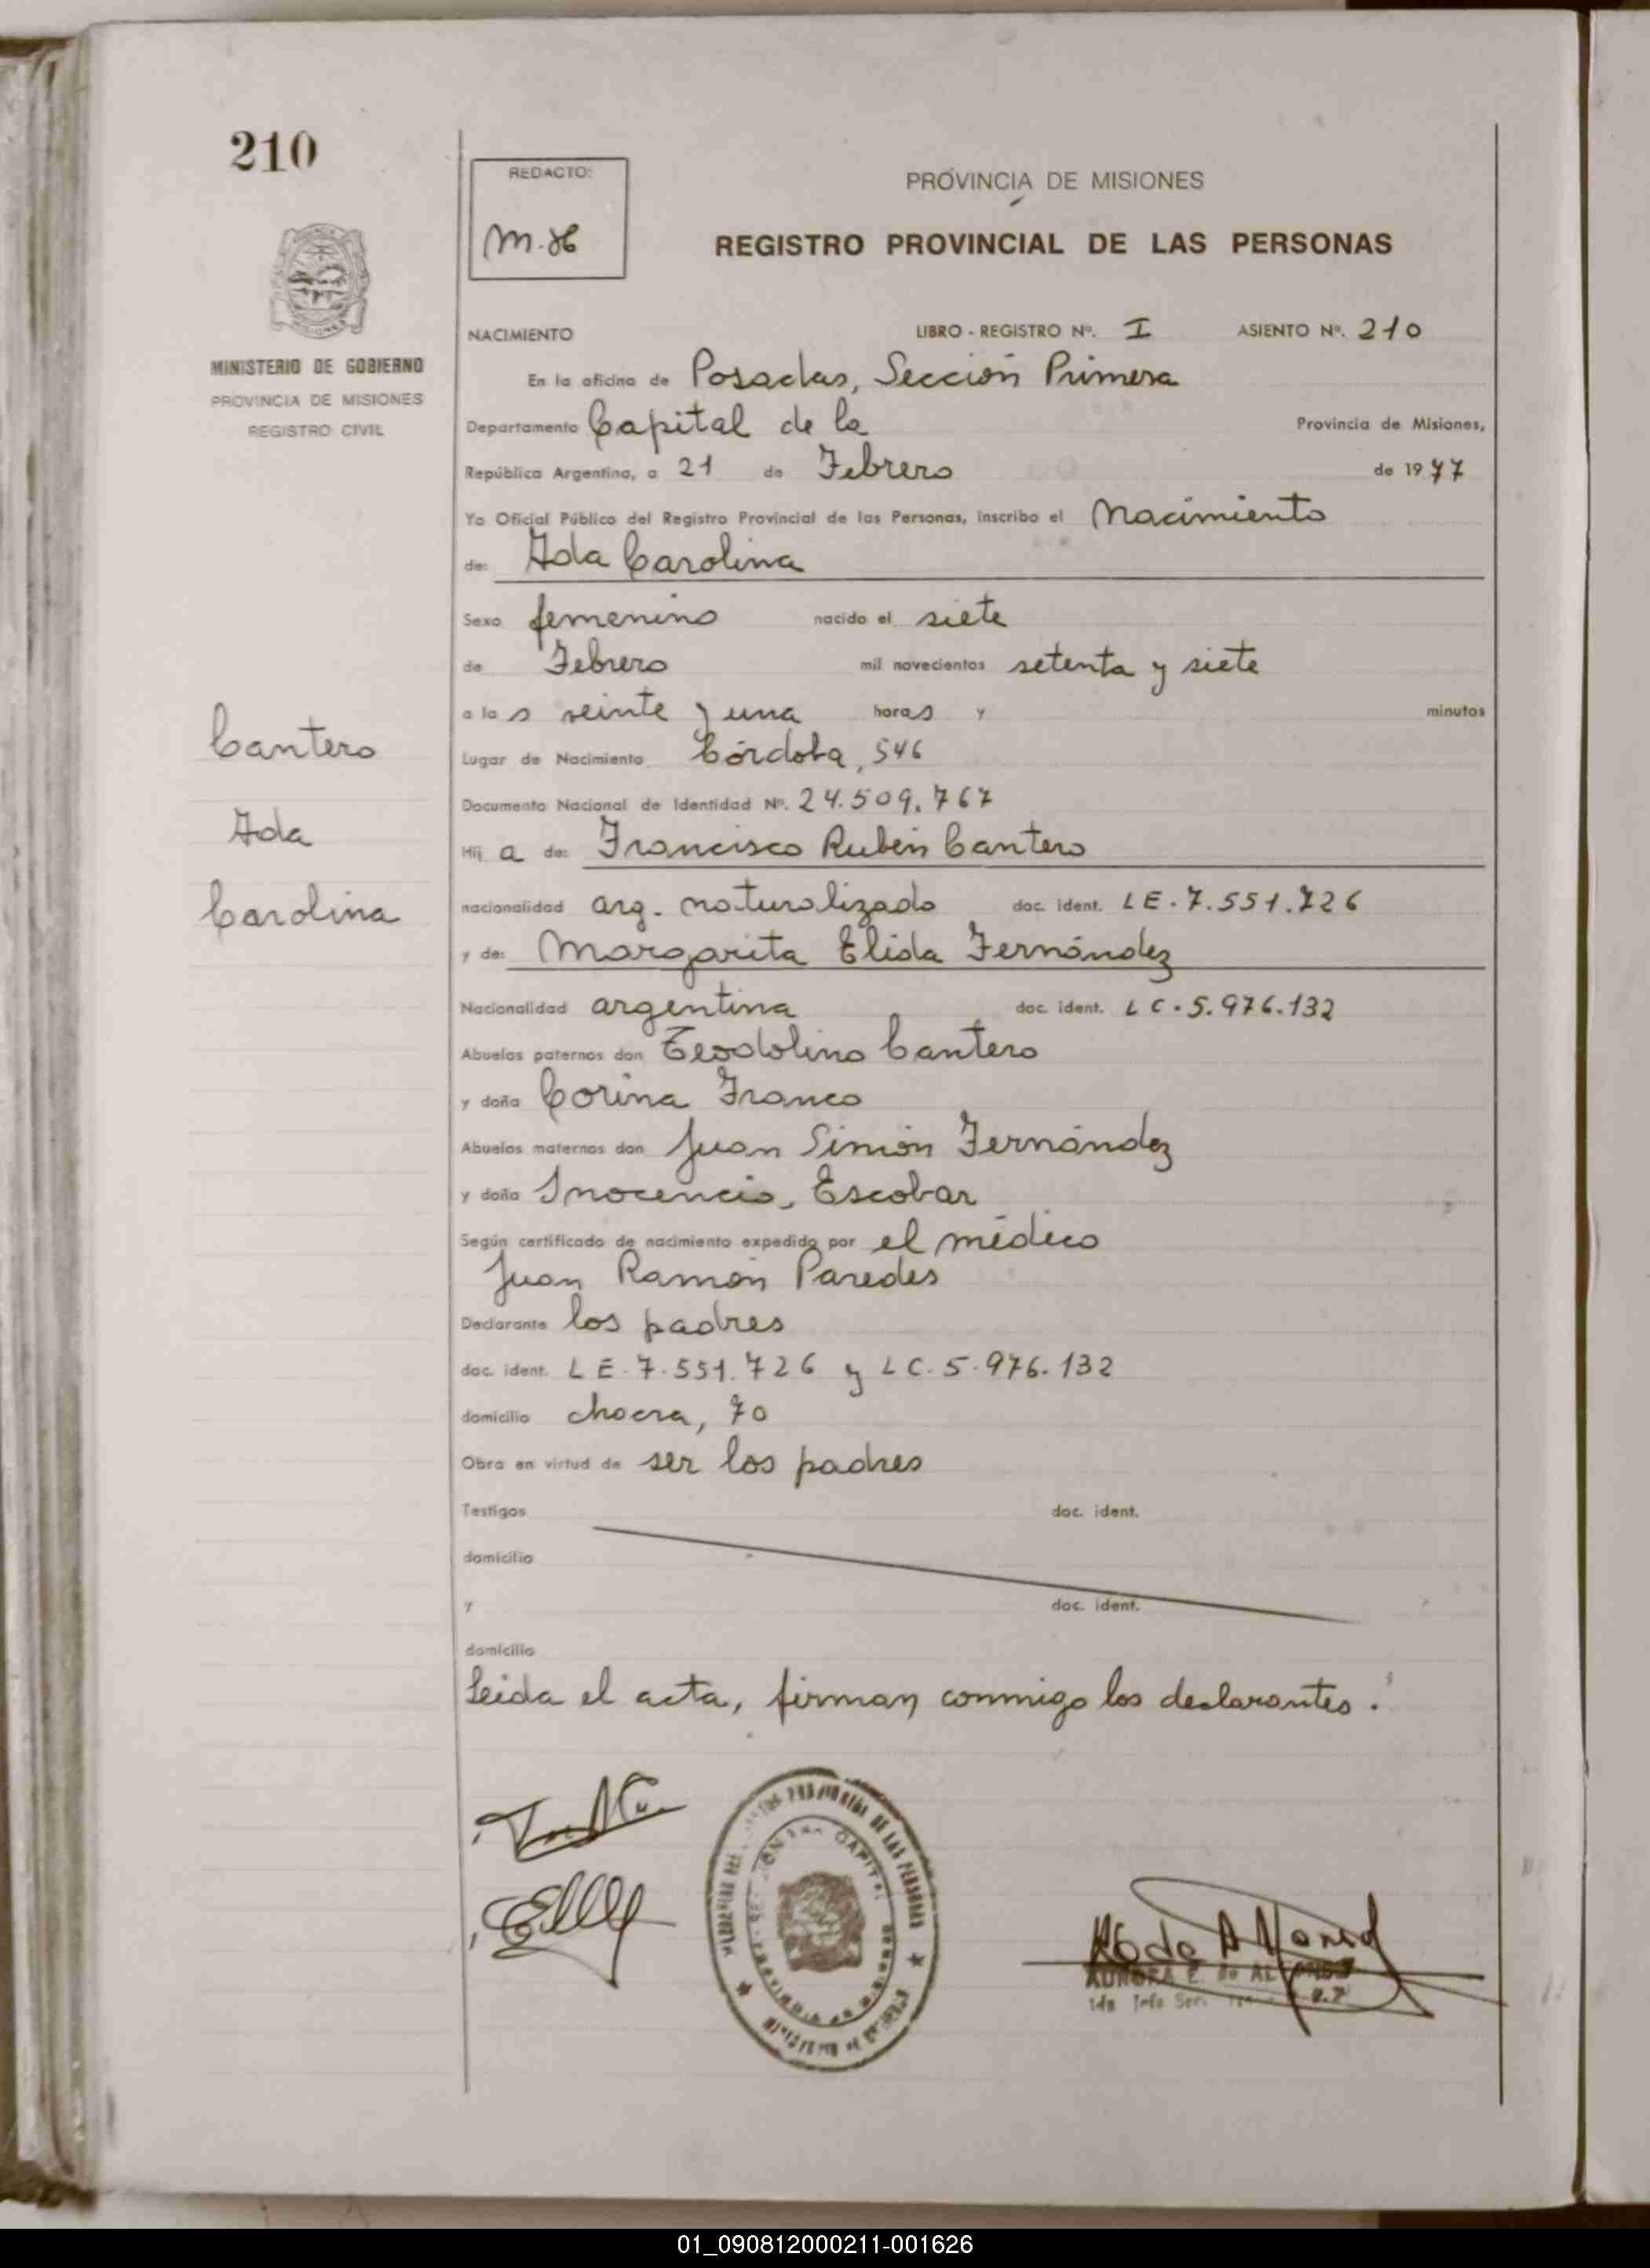 210
REDACTO:
PROVINCIA DE MISIONES
REGISTRO PROVINCIAL DE LAS PERSONAS
MINISTERIO DE GOBIERNO
PROVINCIA DE MISIONES
REGISTRO CIVIL
NACIMIENTO LIBRO - REGISTRO Nº. I ASIENTO Nº. 210
En la oficina de Posadas, Sección Primera
Departamento Capital de la Provincia de Misiones,
República Argentina, a 21 de Febrero de 1977
Yo Oficial Público del Registro Provincial de las Personas, inscribo el Nacimiento
de: Ida Carolina
Sexo femenino nacido el siete
de Febrero mil novecientos setenta y siete
a las veinte y una horas y minutos
Cantero
Ida
Carolina
Lugar de Nacimiento Córdoba, 546
Documento Nacional de Identidad Nº. 24.509.767
Hij a de: Francisco Rubén Cantero
nacionalidad arg. naturalizado doc. ident. LE. 7.551.726
y de: Margarita Elida Fernández
Nacionalidad argentina doc. ident. LC. 5.976.132
Abuelos paternos don Teodolino Cantero
y doña Corina Franco
Abuelos maternos don Juan Simón Fernández
y doña Inocencia Escobar
Según certificado de nacimiento expedido por el médico
Juan Ramón Paredes
Declarante los padres
doc. ident. LE. 7.551.726 y LC. 5.976.132
domicilio chacra, 70
Obra en virtud de ser los padres
Testigos doc. ident.
domicilio
y doc. ident.
domicilio
Leida el acta, firman conmigo los declarantes.
AURORA E. de
01_090812000211-001626